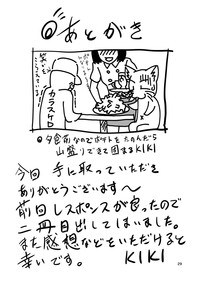 あとがき
カラスヤD
夕食前なのでポテトをたのんだら
山盛りできて困まるKIKI
今回 手に取っていただき
ありがとうございます〜
前回レスポンスが良ったので
二冊目出してしまいました。
また感想などといただけると
幸いです。 KIKI